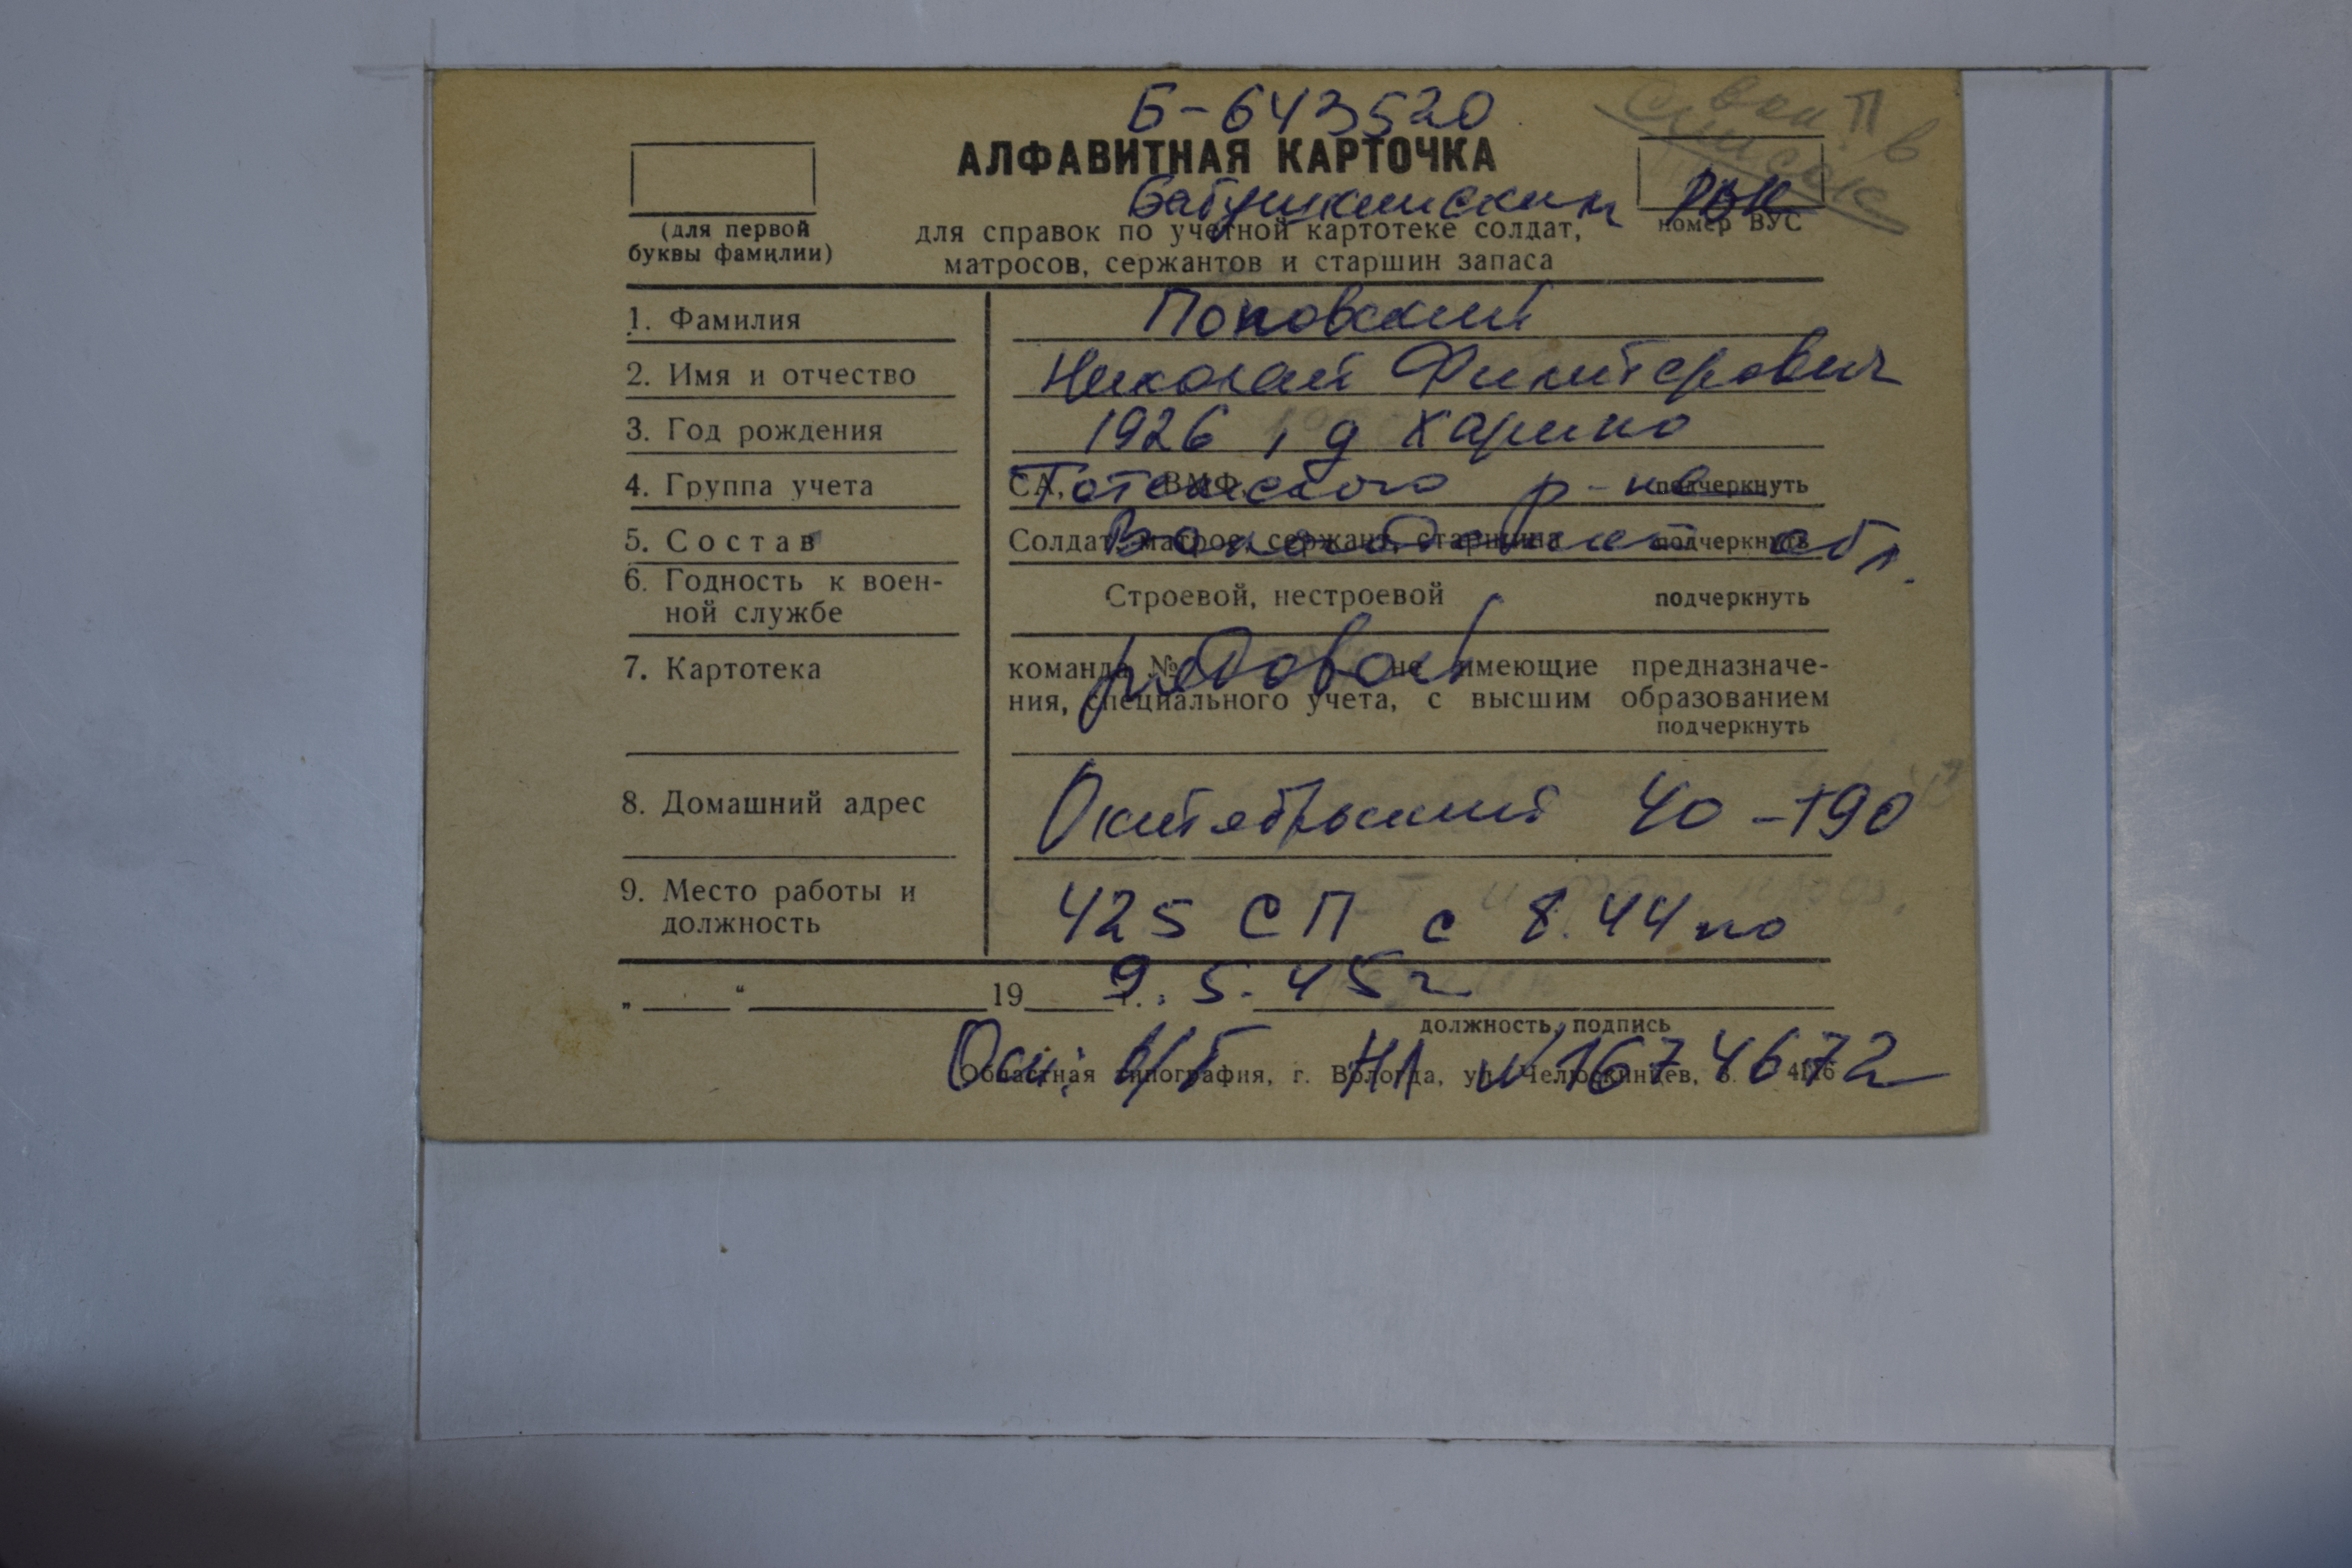 Б-643520
АЛФАВИТНАЯ КАРТОЧКА
Бабушкинским РВК
(для первой буквы фамилии)
для справок по учетной картотеке солдат,
матросов, сержантов и старшин запаса
номер ВУС
список
1. Фамилия Поповский
2. Имя и отчество Николай
3. Год рождения 1926, д Харино
4. Группа учета СА, ВМФ подчеркнуть
Тотемского р-на
5. Состав Солдат, матрос, сержант, старшина подчеркнуть
Вологодской обл.
6. Годность к воен-
ной службе Строевой, нестроевой подчеркнуть
рядовой
7. Картотека команда № не имеющие предназначе-
ния, специального учета, с высшим образованием
подчеркнуть
8. Домашний адрес Октябрьский 40-190
9. Место работы и
должность 425 СП с 8.44 по
9.5.45г
„ “ 19 г.
должность, подпись
Осн: в/б НЛ №1674672
Областная типография, г. Вологда, ул. Челюскинцев, 3.